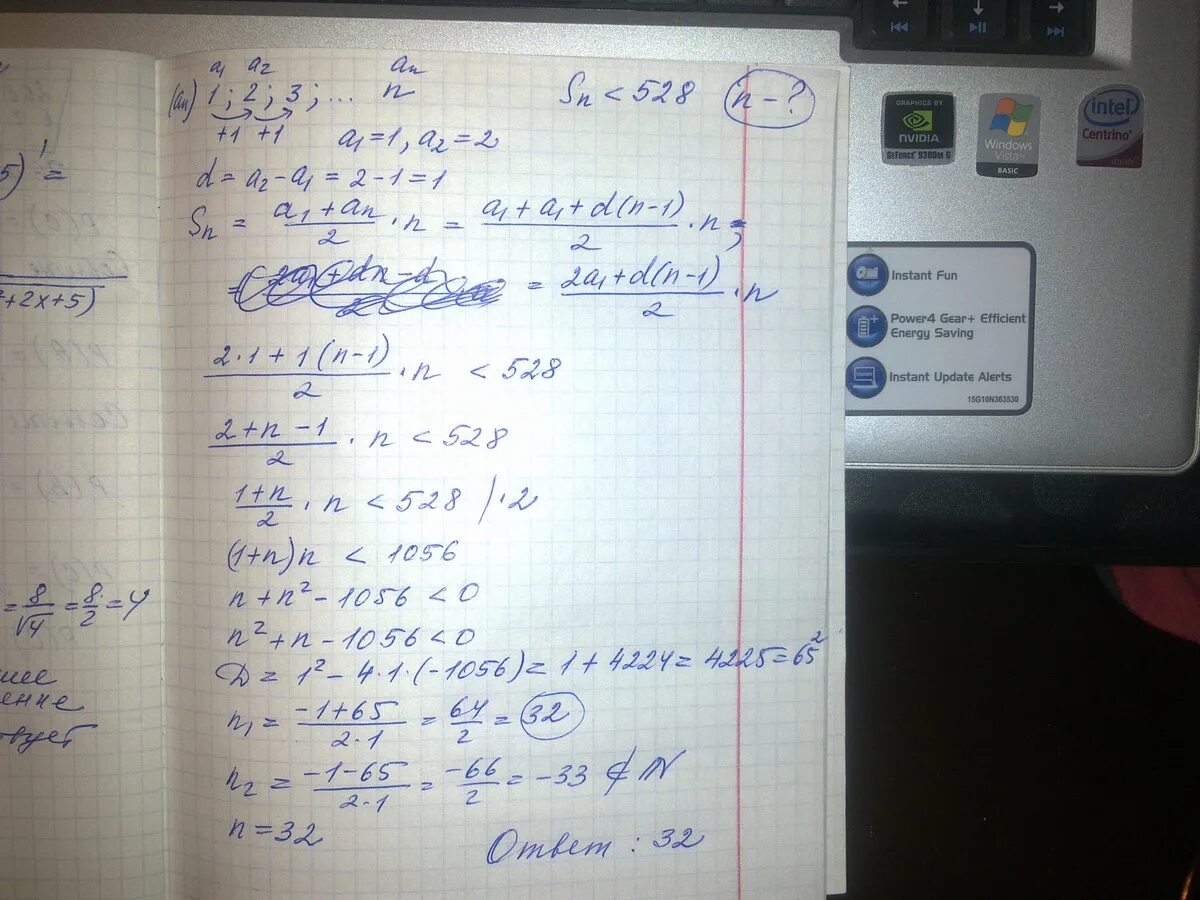 a₁ a₂ aₙ
(aₙ) 1 ; 2 ; 3 ; ... n
+1 +1
Sₙ < 528 n - ?
a₁ = 1, a₂ = 2
d = a₂ - a₁ = 2 - 1 = 1
Sₙ = (a₁ + aₙ)/2 · n = (a₁ + a₁ + d(n-1))/2 · n =
= (2a₁ + d(n-1))/2 · n
(2·1 + 1(n-1))/2 · n < 528
(2 + n - 1)/2 · n < 528
(1+n)/2 · n < 528 /·2
(1+n)n < 1056
n + n² - 1056 < 0
n² + n - 1056 < 0
D = 1² - 4·1·(-1056) = 1 + 4224 = 4225 = 65²
n₁ = (-1+65)/(2·1) = 64/2 = 32
n₂ = (-1-65)/(2·1) = -66/2 = -33 ∉ N
n = 32
Ответ : 32
5) =
²+2x+5)
= 8/√4 = 8/2 = 4
GRAPHICS BY
NVIDIA
GEFORCE 9300M G
Windows
Vista™
BASIC
intel
Centrino
inside™
Instant Fun
Power4 Gear+ Efficient
Energy Saving
Instant Update Alerts
15G10N363530